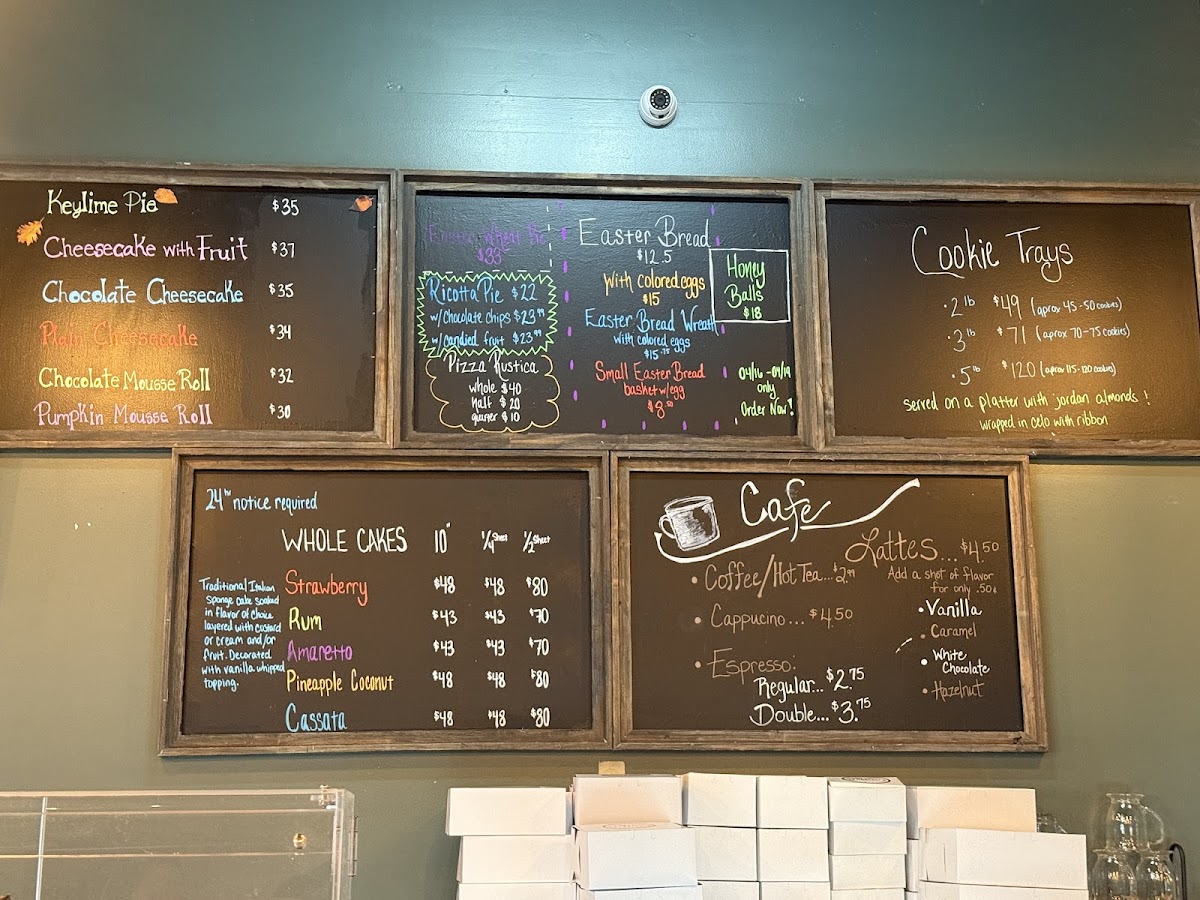 Keylime Pie $35
Cheesecake with Fruit $37
Chocolate Cheesecake $35
Plain Cheesecake $34
Chocolate Mousse Roll $32
Pumpkin Mousse Roll $30
Easter Wheat Pie
$35
Ricotta Pie $22
w/chocolate chips $23.99
w/candied fruit $23.99
Pizza Rustica
whole $40
half $20
quarter $10
Easter Bread
$12.5
with colored eggs
$15
Easter Bread Wreath
with colored eggs
$15.75
Small Easter Bread
basket w/egg
$8.50
Honey
Balls
$18
04/16-04/19
only
Order Now!
Cookie Trays
• 2 lb $49 (aprox 45-50 cookies)
• 3 lb $71 (aprox 70-75 cookies)
• 5 lb $120 (aprox 115-120 cookies)
served on a platter with jordan almonds!
wrapped in celo with ribbon
24hr notice required
WHOLE CAKES 10" 1/4 Sheet 1/2 Sheet
Traditional Italian
sponge cake soaked
in flavor of choice
layered with custard
or cream and/or
fruit. Decorated
with vanilla whipped
topping.
Strawberry $48 $48 $80
Rum $43 $43 $70
Amaretto $43 $43 $70
Pineapple Coconut $48 $48 $80
Cassata $48 $48 $80
Cafe
• Coffee/Hot Tea...$2.99
• Cappucino...$4.50
• Espresso:
Regular...$2.75
Double...$3.75
Lattes...$4.50
Add a shot of flavor
for only .50¢
• Vanilla
• Caramel
• White
Chocolate
• Hazelnut